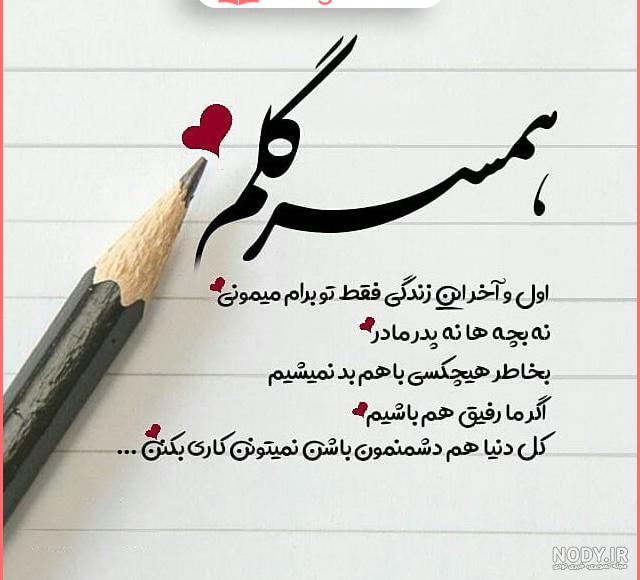 همسر گلم
اول و آخر این زندگی فقط تو برام میمونی
نه بچه ها نه پدر مادر
بخاطر هیچکسی با هم بد نمیشیم
اگر ما رفیق هم باشیم
کل دنیا هم دشمنمون باشن نمیتونن کاری بکنن ...
NODY.IR